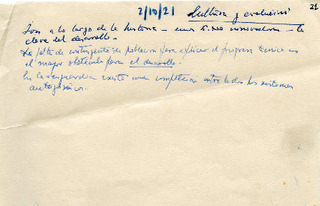 2/10/21 Cultura y evolución 21
Son a lo largo de la historia - unos 5.000 innovadores - la
clave del desarrollo -
La falta de contingente de población para aplicar el progreso técnico es
el mayor obstáculo para el desarrollo -
En la vanguardia existe una competencia entre todos los sistemas